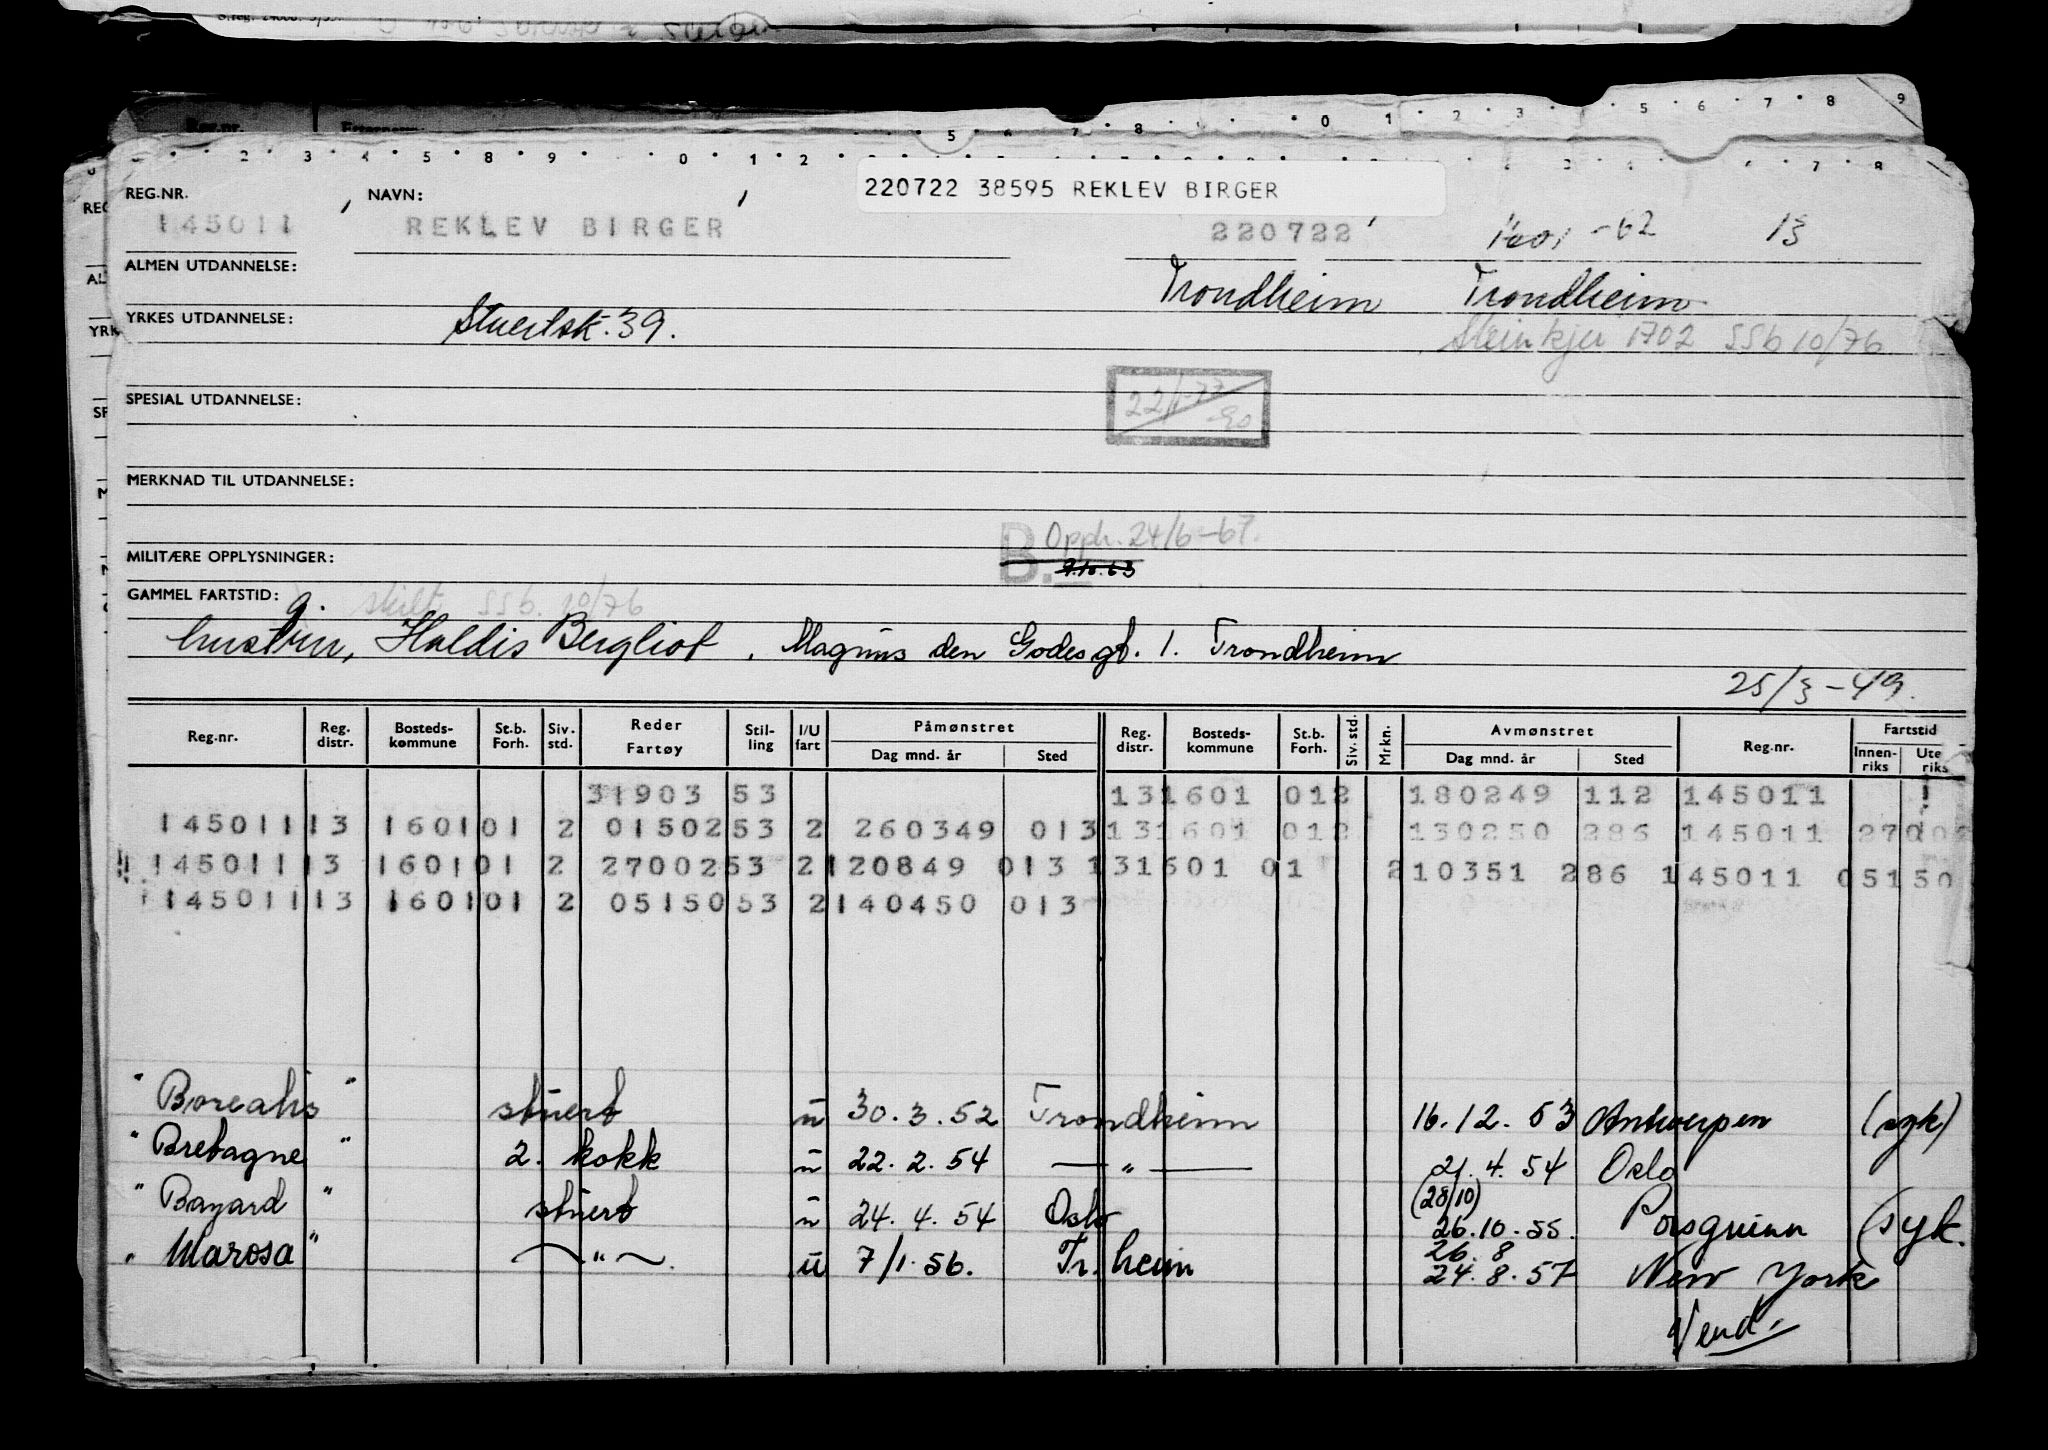 220722 38595 REKLEV BIRGER
REG.NR. NAVN:
145011 REKLEV BIRGER 220722 1601-62 13
ALMEN UTDANNELSE: Trondheim Trondheim
YRKES UTDANNELSE: Stuertsk. 39. Steinkjer 1702 SSb 10/76
SPESIAL UTDANNELSE: 22/1-77
MERKNAD TIL UTDANNELSE:
B. Opph. 24/6-67.
MILITÆRE OPPLYSNINGER: 9.10.63
GAMMEL FARTSTID: g. skilt SSb. 10/76
hustru, Haldis Bergliot, Magnus den Godesgt. 1. Trondheim
25/3-49.
Reg.nr. Reg. distr. Bosteds-kommune St.b. Forh. Siv. std. Reder Fartøy Stil-ling I/U fart Påmønstret Dag mnd. år Sted Reg. distr. Bosteds-kommune St.b. Forh. Siv. std. Mrkn. Avmønstret Dag mnd. år Sted Reg.nr. Fartstid Innen-riks Ute riks
31903 53 131601 012 180249 112 145011
145011 13 1601 01 2 01502 53 2 260349 013 131601 012 130250 286 145011 2700
145011 13 1601 01 2 27002 53 2 120849 013 131601 01 210351 286 145011 05150
145011 13 1601 01 2 05150 53 2 140450 013
"Borealis" stuert u 30.3.52 Trondheim 16.12.53 Antwerpen (syk)
"Bretagne" 2. kokk u 22.2.54 — " — 21.4.54 Oslo
(28/10)
"Bayard" stuert u 24.4.54 Oslo 26.10.55. Porsgrunn (syk.
26.8
"Marosa" — " — u 7/1.56. Tr.heim 24.8.57 New York
Vend.